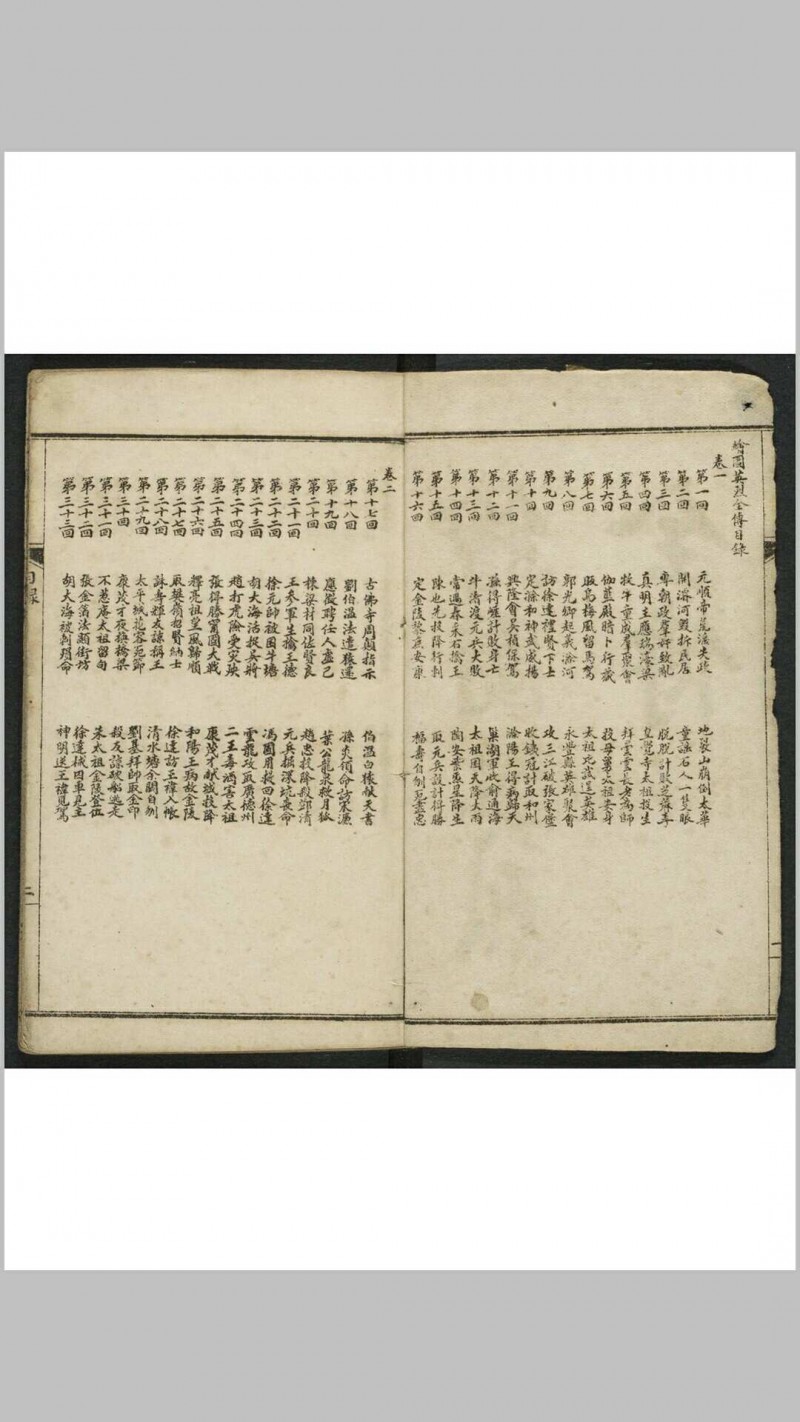 繪圖英烈全傳目錄
卷一
第一回 元順帝荒淫失政 地裂山崩倒太華
第二回 開濬河毀拆民居 童謠石人一隻眼
第三回 專朝政羣奸致亂 脫脫計敗芝蔴李
第四回 真明主應瑞濠梁 皇覺寺太祖投生
第五回 牧牛童成羣聚會 拜雲雲長老為師
第六回 伽藍殿暗卜行藏 投母舅太祖安身
第七回 販烏梅風留馬駕 太祖比武逞英雄
第八回 郭光卿起義滁河 永豐縣英雄聚會
第九回 訪徐達禮賢下士 攻三江破張家堡
第十回 定滁和神武威揚 收鐵冠計取和州
第十一回 興隆會吳禎保駕 滁陽王得病歸天
第十二回 孫得崖計敗身亡 巢湖軍收俞通海
第十三回 牛渚渡元兵大敗 太祖困天降大雨
第十四回 常遇春采石擒王 蘭安紫魚星降生
第十五回 陳也先投降行刺 取元兵設計得勝
第十六回 定金陵黎庶安康 福壽自刎克盡忠
卷二
第十七回 古佛寺周顛指示 伯溫白猿獻天書
第十八回 劉伯溫法遣猿還 孫炎領命訪宋濂
第十九回 應徵聘任人虛己 葉公龍泉救月狐
第二十回 棟梁材同佐賢良 趙忠投降殺鄧清
第二十一回 王參軍生擒王德 元兵攂深坑喪命
第二十二回 徐元帥被困牛塘 馮國用救四徐達
第二十三回 胡大海活捉吳將 雲龍攻取廣德州
第二十四回 趙打虎險受灾殃 二王毒酒害太祖
第二十五回 張得勝寗國大戰 康茂才獻城投降
第二十六回 釋亮祖望風歸順 和陽王病故金陵
第二十七回 取樊嶺招賢納士 徐達訪王禕入帳
第二十八回 誅壽輝友諒稱王 清水塘余闕自刎
第二十九回 太平城花雲死節 劉基拜帥取金印
第三十回 康茂才夜換橋梁 殺友諒破船逃走
第三十一回 不惹庵太祖留句 朱太祖金陵登位
第三十二回 張金箔法顯街坊 徐達械囚車見主
第三十三回 胡大海被刺殞命 神明送王禕見駕
目錄
二